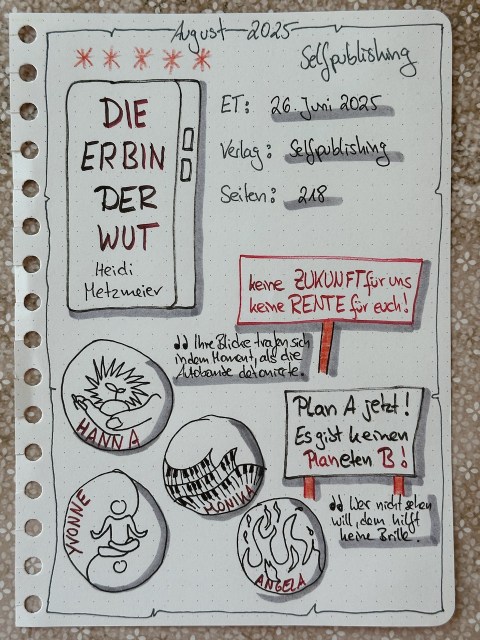 August 2025
Selfpublishing
DIE
ERBIN
DER
WUT
Heidi
Metzmeier
ET: 26. Juni 2025
Verlag: Selfpublishing
Seiten: 218
keine ZUKUNFT für uns
keine RENTE für euch!
"Ihre Blicke trafen sich
in dem Moment, als die
Autobombe detonierte.
HANNA
Plan A jetzt!
Es gibt keinen
Planeten B!
MONIKA
YVONNE
"Wer nicht sehen
will, dem hilft
keine Brille.
ANGELA